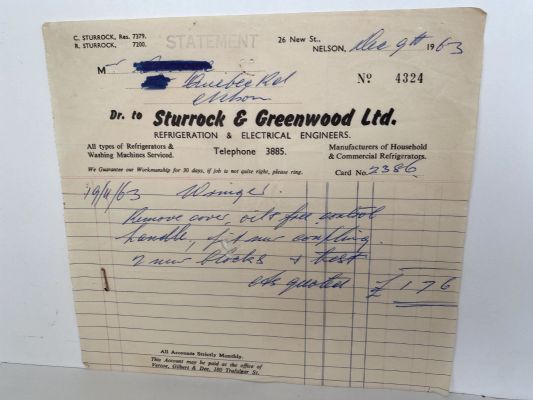 C. STURROCK, Res. 7379.
R. STURROCK, 7200.
STATEMENT
26 New St.,
NELSON, Dec 9th 1963
M
Quebec Rd
Nelson
No 4324
Dr. to Sturrock & Greenwood Ltd.
REFRIGERATION & ELECTRICAL ENGINEERS.
All types of Refrigerators &
Washing Machines Serviced.
Telephone 3885.
Manufacturers of Household
& Commercial Refrigerators.
We Guarantee our Workmanship for 30 days, if job is not quite right, please ring.
Card No. 2386
19/11/63 Wringer.
Remove cover, oil & free control
handle, fit new coupling.
2 new blocks & test
As quoted £ 1.7.6
All Accounts Strictly Monthly.
This Account may be paid at the office of
Verroe, Gilbert & Dee, 180 Trafalgar St.